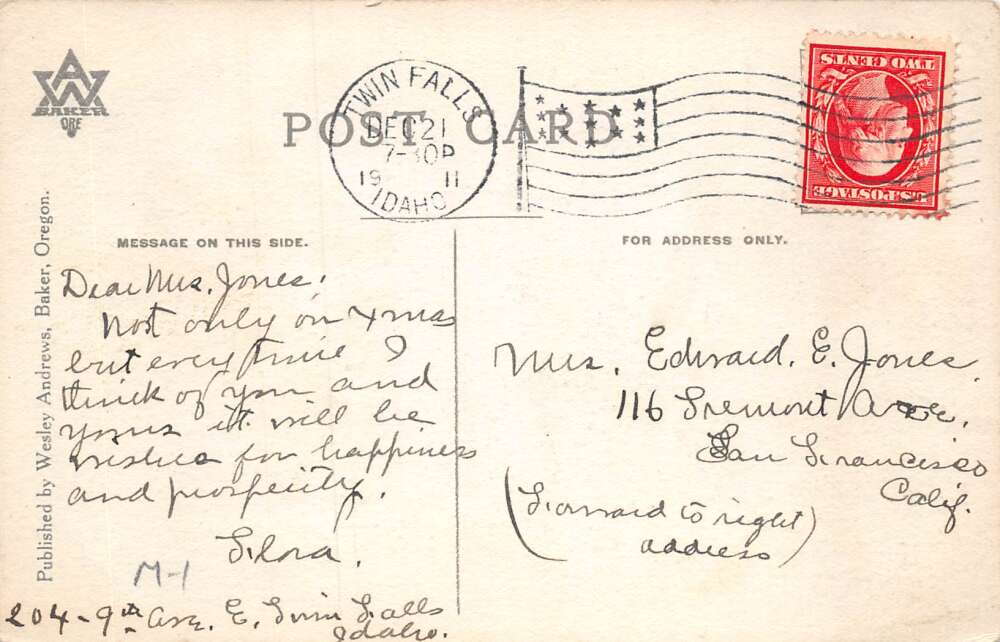 AW
BAKER
ORE
POST CARD
TWIN FALLS
DEC 21
7-30P
19 11
IDAHO
TWO CENTS
U.S. POSTAGE
Published by Wesley Andrews, Baker, Oregon.
MESSAGE ON THIS SIDE.
Dear Mrs. Jones:
Not only on Xmas
but every time I
think of you and
yours it will be
wishes for happiness
and prosperity.
Flora.
M-1
204-9th Ave. E. Twin Falls
Idaho.
FOR ADDRESS ONLY.
Mrs. Edward. E. Jones.
116 Fremont Ave.
San Francisco
Calif.
(Forward to right
address)